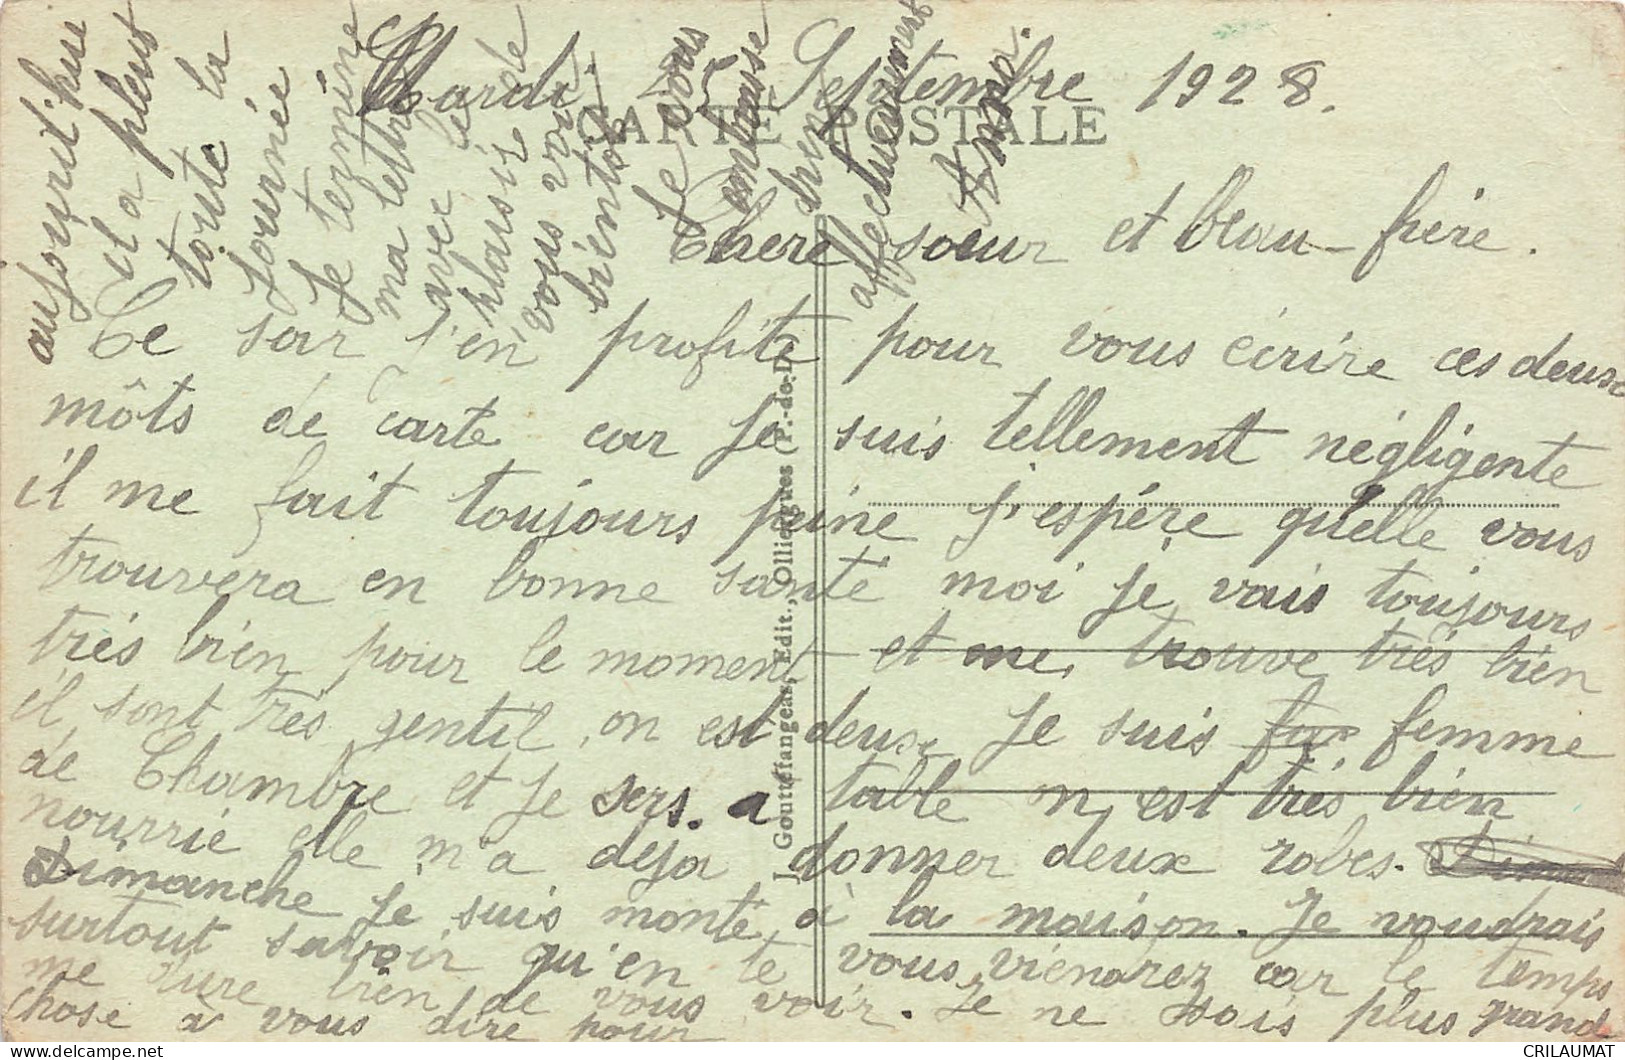 Mardi 25 Septembre 1928.
CARTE POSTALE
Chere soeur et beau-frère.
Ce soir j'en profite pour vous écrire ces deux
môts de carte car je suis tellement négligente
il me fait toujours peine J'espére qu'elle vous
trouvera en bonne santé moi je vais toujours
très bien pour le moment et me trouve très bien
il sont très gentil, on est deux Je suis femme
de Chambre et je sers a table on est très bien
nourrié elle m'a deja donner deux robes.
Dimanche je suis monté à la maison. Je voudrais
surtout savoir qu'en te vous viendrez car le temps
me dure bien de vous voir. Je ne sois plus grand
chose a vous dire pour
aujourd'hui
il a pleut
toute la
journée
Je termine
ma lettre
avec le
plaisir de
vous voir
bientôt
Je vous
embrasse
bien
affectueusement
J. Gouttefangeas, Edit., Ollierques (P.-de-D.)
CRILAUMAT